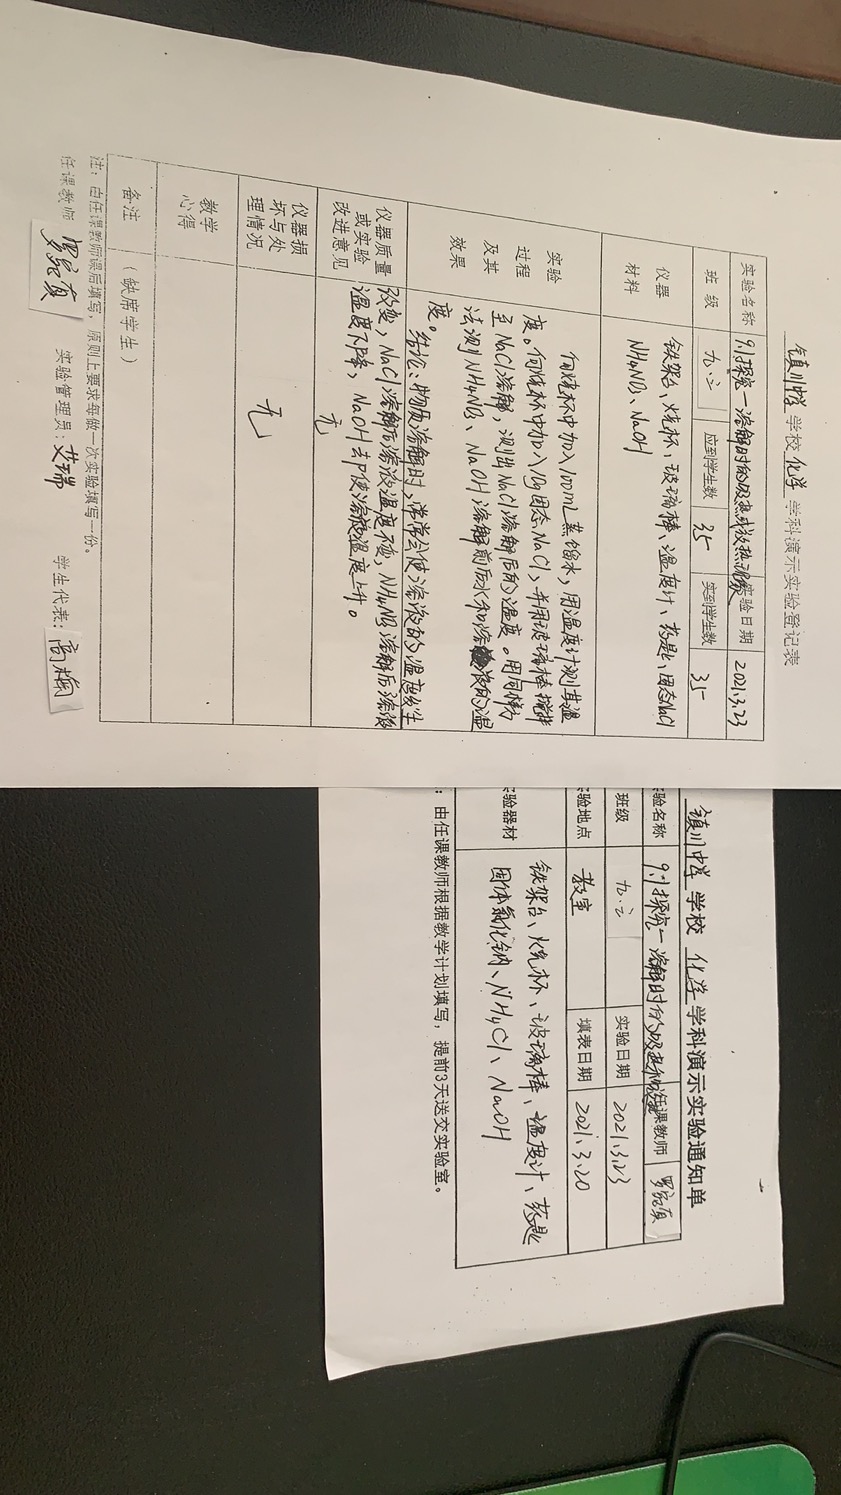 镇川中学 学校 化学 学科演示实验登记表
实验名称 9.1探究一溶解时的吸热或放热现象 实验日期 2021.3.23
班 级 九.二 应到学生数 35 实到学生数 35
仪器
材料
铁架台、烧杯、玻璃棒、温度计、药匙、固态NaCl
NH4NO3、NaOH
实验
过程
及其
效果
向烧杯中加入100mL蒸馏水，用温度计测其温
度。向烧杯中加入10g固态NaCl，并用玻璃棒搅拌
至NaCl溶解，测出NaCl溶解后的温度。用同样方
法测NH4NO3、NaOH溶解前后水和溶液的温
度。
结论：物质溶解时，常常会使溶液的温度发生
改变，NaCl溶解后溶液温度不变，NH4NO3溶解后溶液
温度下降，NaOH却使溶液温度上升。
仪器质量
或实验
改进意见
无
仪器损
坏与处
理情况
无
教学
心得
备注
（缺席学生）
注：由任课教师课后填写，原则上要求每做一次实验填写一份。
任课教师 实验管理员：艾瑞 学生代表：高梅
镇川中学 学校 化学 学科演示实验通知单
验名称 9.1探究一溶解时的吸热和放热 任课教师
班级 九.二 实验日期 2021.3.23
验地点 教室 填表日期 2021.3.20
验器材
铁架台、烧杯、玻璃棒、温度计、药匙
固体氯化钠、NH4Cl、NaOH
：由任课教师根据教学计划填写，提前3天送交实验室。